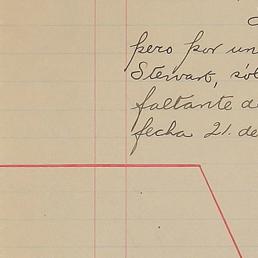 pero por un
Stewart, sól
faltante d
fecha 21. de